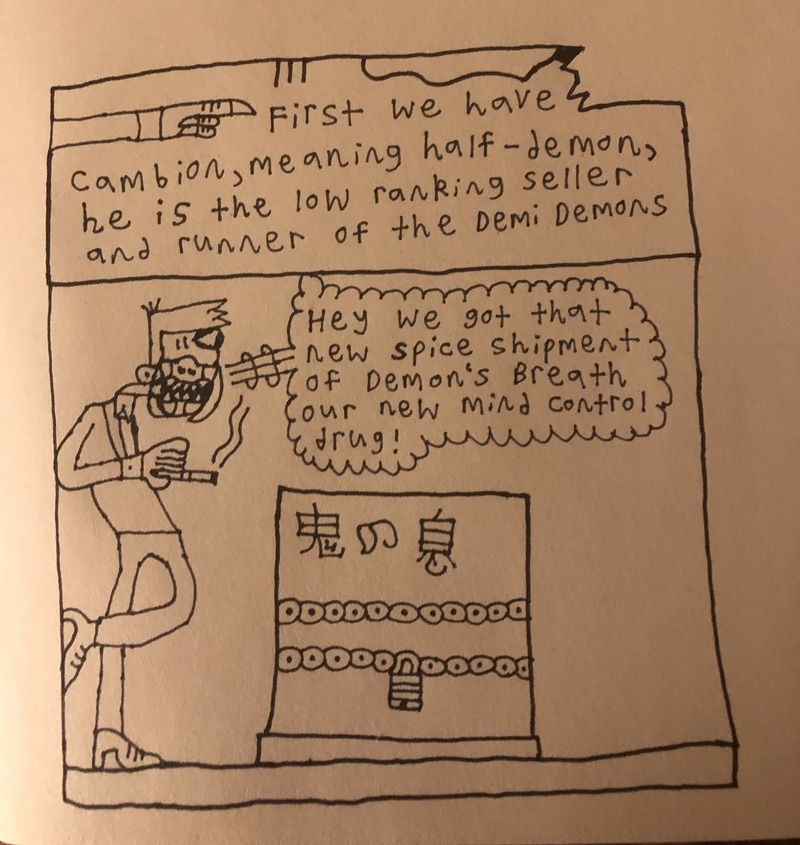 First we have
Cambion, meaning half-demon,
he is the low ranking seller
and runner of the Demi Demons
Hey we got that
new spice shipment
of Demon's Breath
our new mind control
drug!
鬼の息